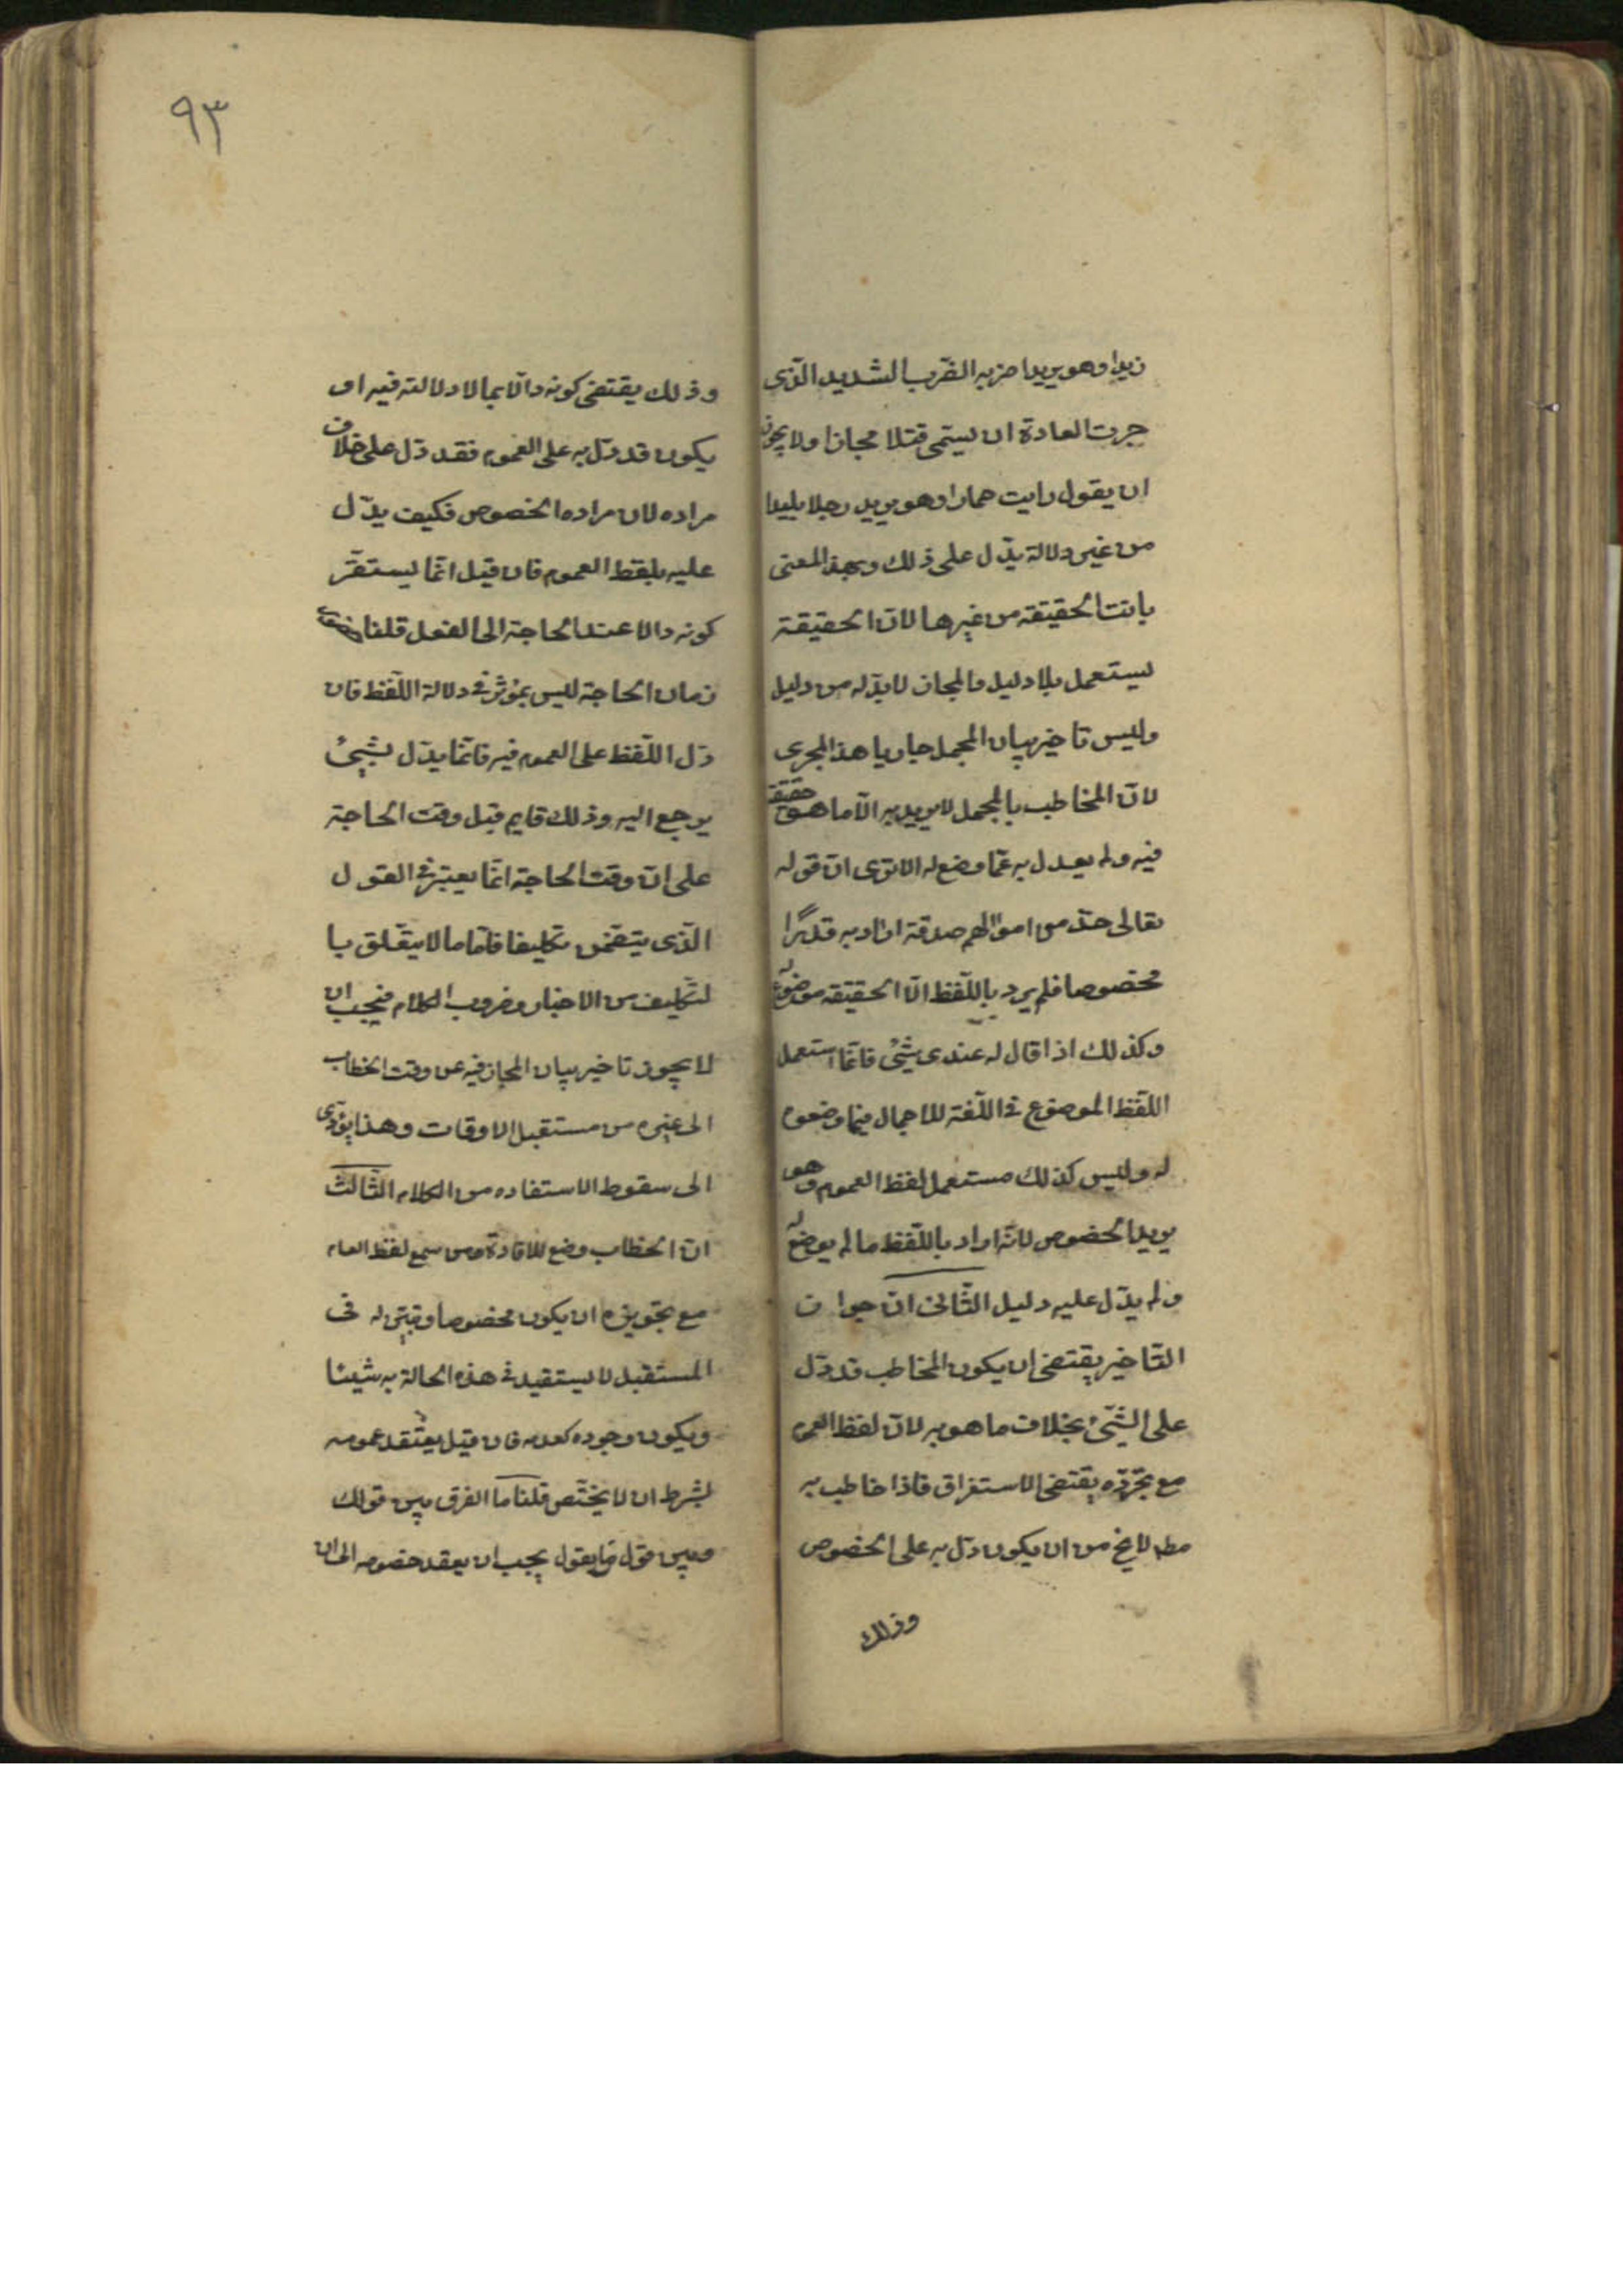 زيدا وهو يريد اضربه الضرب الشديد الذى
جرت العادة ان يسمى قتلا مجازا ولا يجوز
ان يقول رايت حمارا وهو يريد رجلا بليدا
من غير دلالة يدل على ذلك وبهذا المعنى
بانت الحقيقة من غيرها لان الحقيقة
يستعمل بلا دليل والمجاز لا بد له من دليل
وليس تاخير بيان المجمل جاريا هذا المجرى
لان المخاطب بالمجمل لا يريد به الا ما هو حقيقة
فيه ولم يعدل به عما وضع له الا ترى ان قوله
تعالى خذ من اموالهم صدقة اراد به قدرا
مخصوصا فلم يرد باللفظ الا الحقيقة موضوع له
وكذلك اذا قال له عندى شىء فانما استعمل
اللفظ الموضوع فى اللغة للاجمال فيما وضعوه
له وليس كذلك مستعمل لفظ العموم وهو
يريد الخصوص لانه اراد باللفظ ما لم يوضع له
ولم يدل عليه دليل الثانى ان جواز
التاخير يقتضى ان يكون المخاطب قد دل
على الشىء بخلاف ما هو به لان لفظ العموم
مع تجرده يقتضى الاستغراق فاذا خاطب به
مط لا يخ من ان يكون دل به على الخصوص
وذلك
٩٣
وذلك يقتضى كونه دالا بما لا دلالة فيه او
يكون قد دل به على العموم فقد دل على خلاف
مراده لان مراده الخصوص فكيف يدل
عليه بلفظ العموم فان قيل انما يستقر
كونه دالا عند الحاجة الى الفعل قلنا حضور
زمان الحاجة ليس بمؤثر فى دلالة اللفظ فان
دل اللفظ على العموم فيه فانما يدل بشىء
يرجع اليه وذلك قايم قبل وقت الحاجة
على ان وقت الحاجة انما يعتبر فى القول
الذى يتضمن تكليفا فاما ما لا يتعلق با
لتكليف من الاخبار وضروب الكلام فيجب ان
لا يجوز تاخير بيان المجاز فيه عن وقت الخطاب
الى غيره من مستقبل الاوقات وهذا يؤدى
الى سقوط الاستفاده من الكلام الثالث
ان الخطاب وضع للافادة ومن سمع لفظ العام
مع تجويزه ان يكون مخصوصا ويبين له فى
المستقبل لا يستفيد فى هذه الحالة به شيئا
ويكون وجوده كعدمه فان قيل يعتقد عمومه
بشرط ان لا يختص قلنا ما الفرق بين قولك
وبين قول من يقول يجب ان يعقد خصوصه الى ان